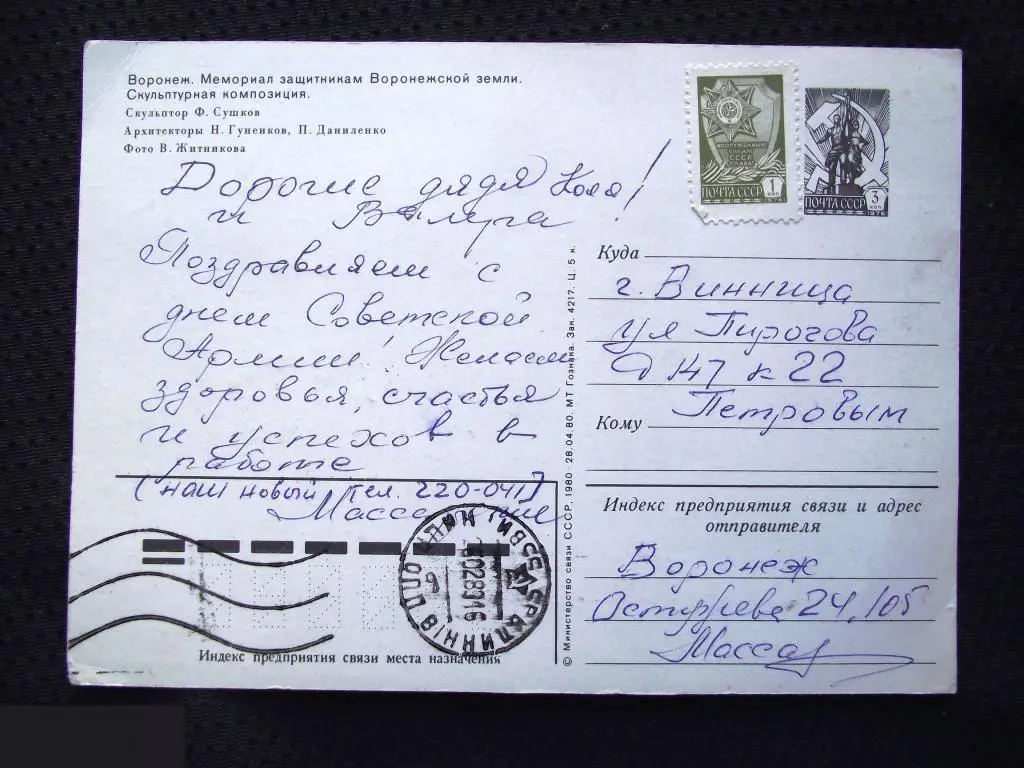 Воронеж. Мемориал защитникам Воронежской земли.
Скульптурная композиция.
Скульптор Ф. Сушков
Архитекторы Н. Гуненков, П. Даниленко
Фото В. Житникова
Дорогие дядя Коля!
и Валера
Поздравляем с
днем Советской
Армии! Желаем
здоровья, счастья
и успехов в
работе
(наш новый тел. 220-041)
Индекс предприятия связи места назначения
© Министерство связи СССР, 1980 · 28.04.80. МТ Гознака. Зак. 4217. Ц. 5 к.
ВООРУЖЕННЫМ
СИЛАМ
СССР
СЛАВА!
ПОЧТА СССР 1 КОП
1976
ПОЧТА СССР 3 КОП
1976
Куда
г. Винница
ул Пирогова
д 147 к 22
Кому Петровым
Индекс предприятия связи и адрес
отправителя
Воронеж
Остужева 24, 105